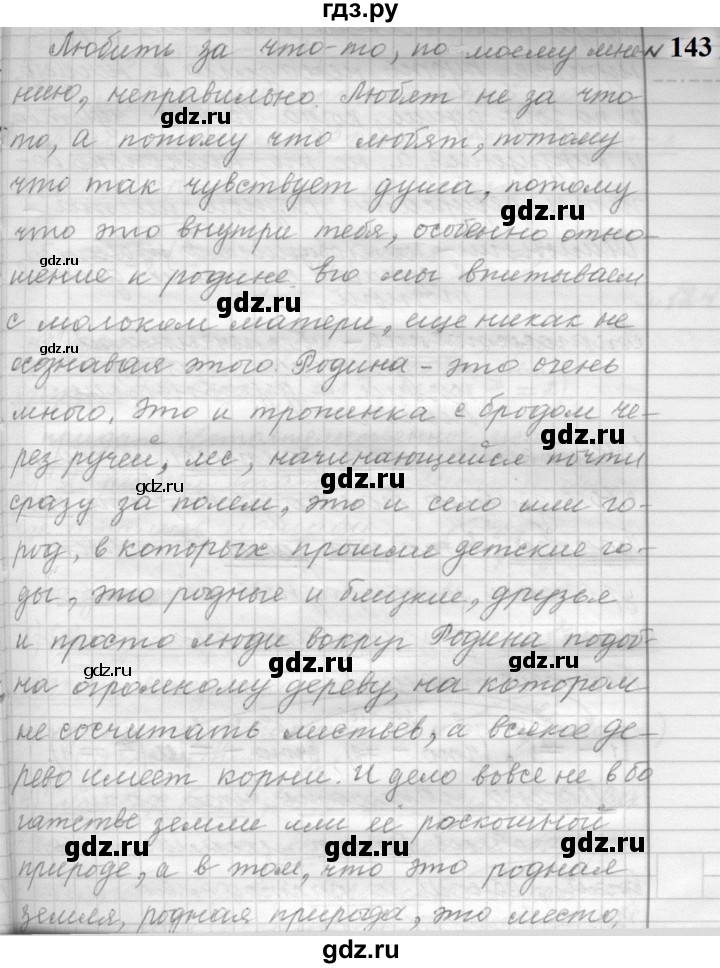 гдз.ру
Любить за что-то, по моему мне№ 143
нию, неправильно. Любят не за что
gdz.ru
то, а потому что любят, потому
что так чувствует душа, потому
gdz.ru
что это внутри тебя, особенно отно-
gdz.ru
шение к родине. Его мы впитываем
gdz.ru
с молоком матери, еще никак не
gdz.ru
осознавая этого. Родина - это очень
много. Это и тропинка с бродом че-
gdz.ru
рез ручей, лес, начинающийся почти
gdz.ru
сразу за полем, это и село или го-
род, в которых прошли детские го-
ды, это родные и близкие, друзья
и просто люди вокруг Родина подоб-
gdz.ru gdz.ru gdz.ru
на огромному дереву, на котором
не сосчитать листьев, а всякое де-
рево имеет корни. И дело вовсе не в бо
гатстве земли или её роскошной
gdz.ru gdz.ru gdz.ru
природе, а в том, что это родная
земля, родная природа, это место,
gdz.ru